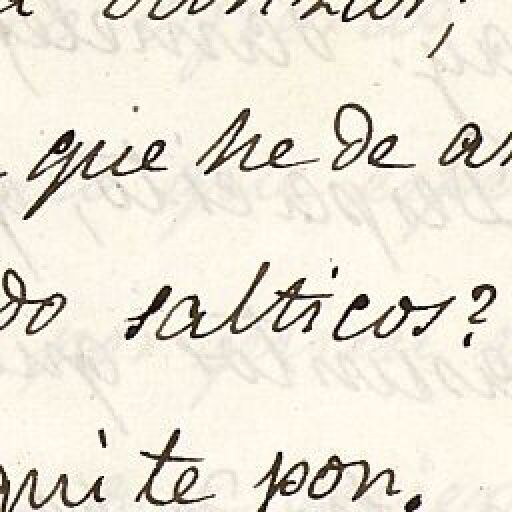 que he de
do salticos?
qui te pon.